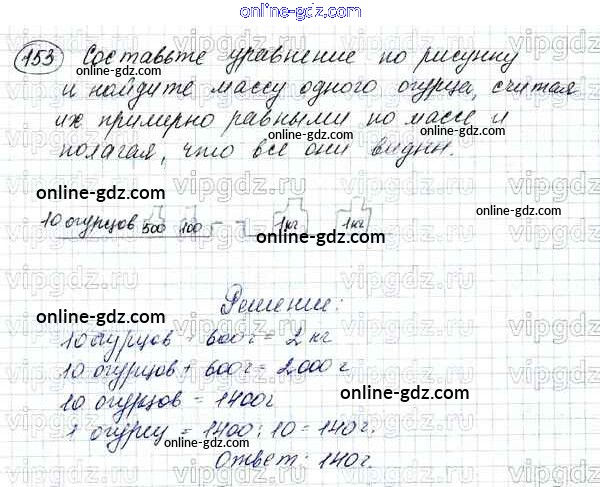 online-gdz.com
153 Составьте уравнение по рисунку
online-gdz.com
и найдите массу одного огурца, считая
их примерно равными по массе и
online-gdz.com
полагая, что все они видны.
online-gdz.com
online-gdz.com
10 огурцов 500 100 1кг 1кг
online-gdz.com
Решение:
online-gdz.com
10 огурцов + 600г = 2 кг
online-gdz.com
10 огурцов + 600г = 2000г
online-gdz.com
10 огурцов = 1400г
1 огурец = 1400 : 10 = 140г.
online-gdz.com
Ответ: 140г.
online-gdz.com